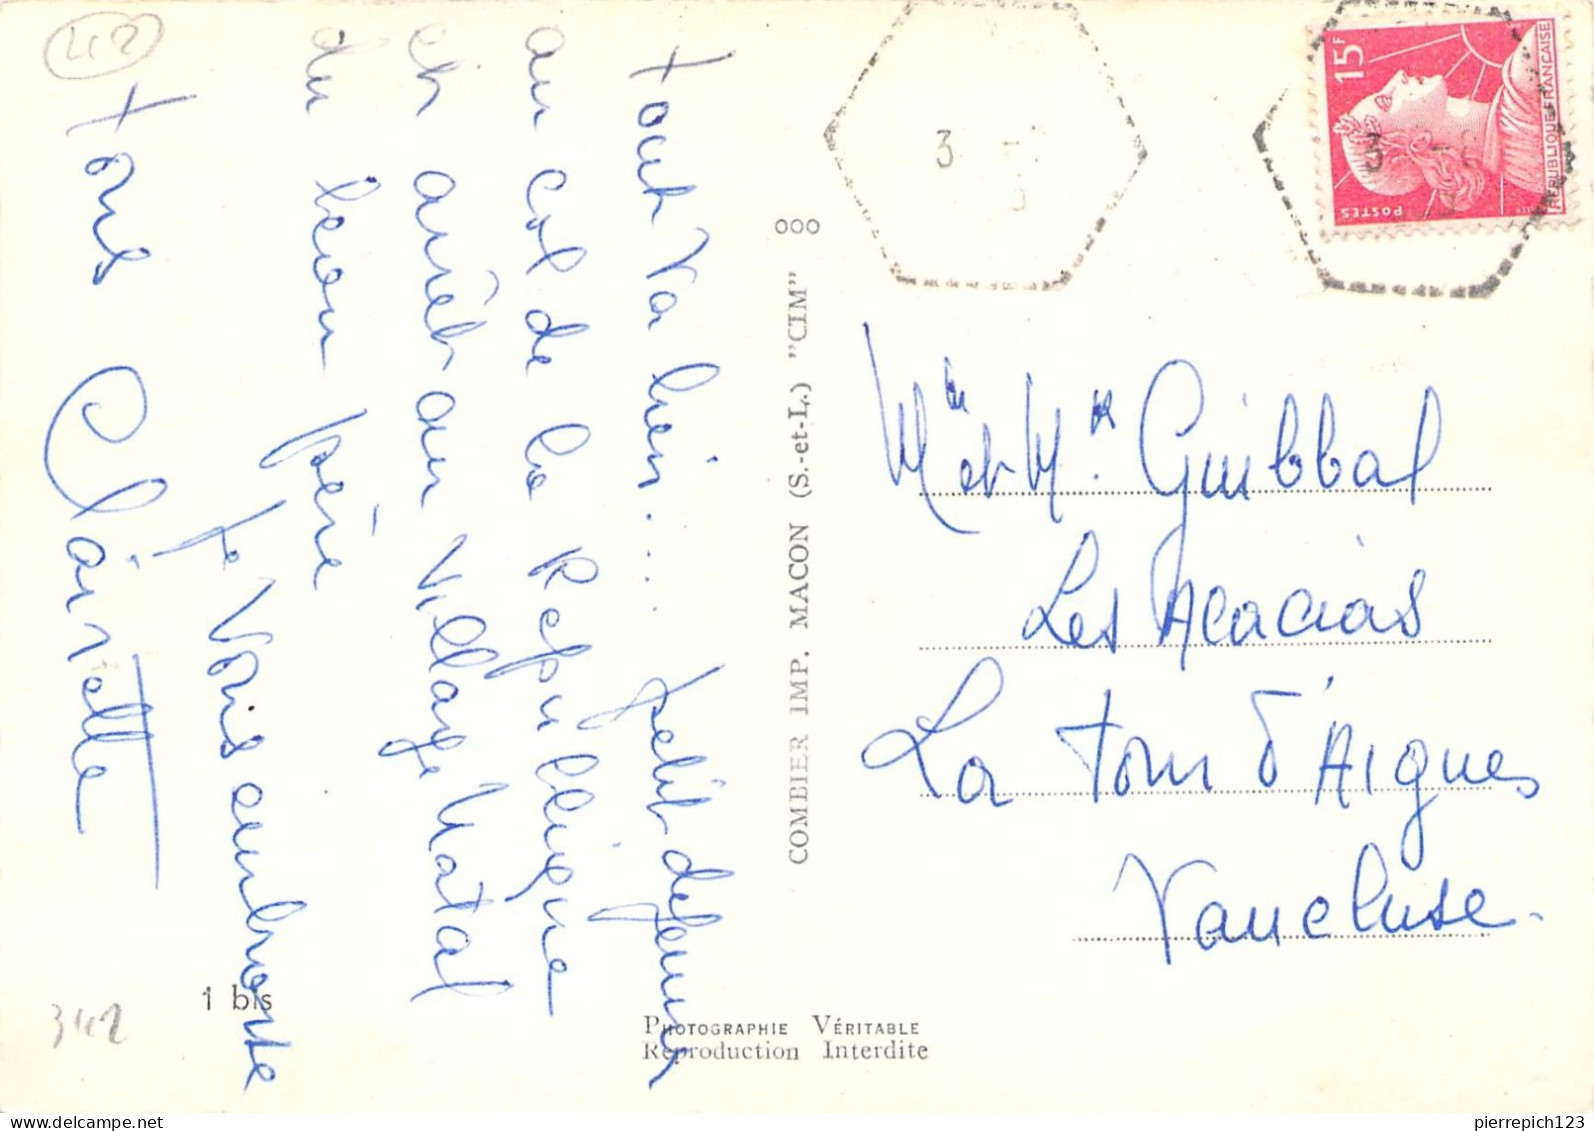 Tout va bien.... petit déjeuner
au col de la République
et arrêt au village natal
du bon père
je vous embrasse
tous Clairette
42
342
1 bis
COMBIER IMP. MACON (S.-et-L.) "CIM"
000
PHOTOGRAPHIE VÉRITABLE
Reproduction Interdite
3
3
15F
POSTES
REPUBLIQUE FRANCAISE
Mme et Mr. Guibbal
Les Acacias
La Tour d'Aigues
Vaucluse.
pierrepich123